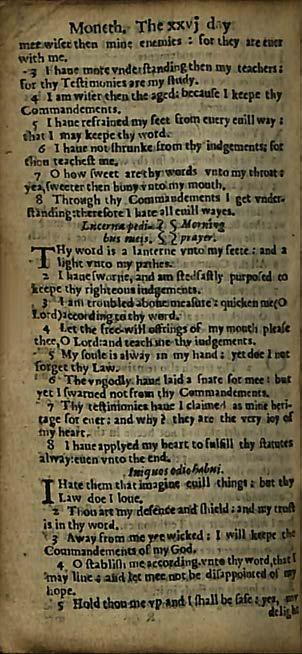 Moneth. The xxvj day
mee wiser then mine enemies : for they are euer
with me.
3 I haue more vnderstanding then my teachers:
for thy Testimonies are my study.
4 I am wiser then the aged: because I keepe thy
Commandements.
5 I haue refrained my feet from euery euill way :
that I may keepe thy word.
6 I haue not shrunke from thy iudgements: for
thou teachest me.
7 O how sweet are thy words vnto my throat :
yea, sweeter then hony vnto my mouth.
8 Through thy Commandements I get vnder-
standing: therefore I hate all euill wayes.
Lucerna pedi- Morning
bus meis. prayer.
THy word is a lanterne vnto my feete : and a
light vnto my pathes.
2 I haue sworne, and am stedfastly purposed to
keepe thy righteous iudgements.
3 I am troubled aboue measure : quicken me (O
Lord) according to thy word.
4 Let the free-will offrings of my mouth please
thee, O Lord: and teach me thy iudgements.
5 My soule is alway in my hand : yet doe I not
forget thy Law.
6 The vngodly haue laid a snare for mee : but
yet I swarued not from thy Commandements.
7 Thy testimonies haue I claimed as mine heri-
tage for euer : and why ? they are the very ioy of
my heart.
8 I haue applyed my heart to fulfill thy statutes
alway: euen vnto the end.
Iniquos odio habui.
I Hate them that imagine euill things : but thy
Law doe I loue.
2 Thou art my defence and shield : and my trust
is in thy word.
3 Away from me yee wicked : I will keepe the
Commandements of my God.
4 O stablish me according vnto thy word, that I
may liue : and let mee not be disappointed of my
hope.
5 Hold thou me vp and I shall be safe : yea, my
delight